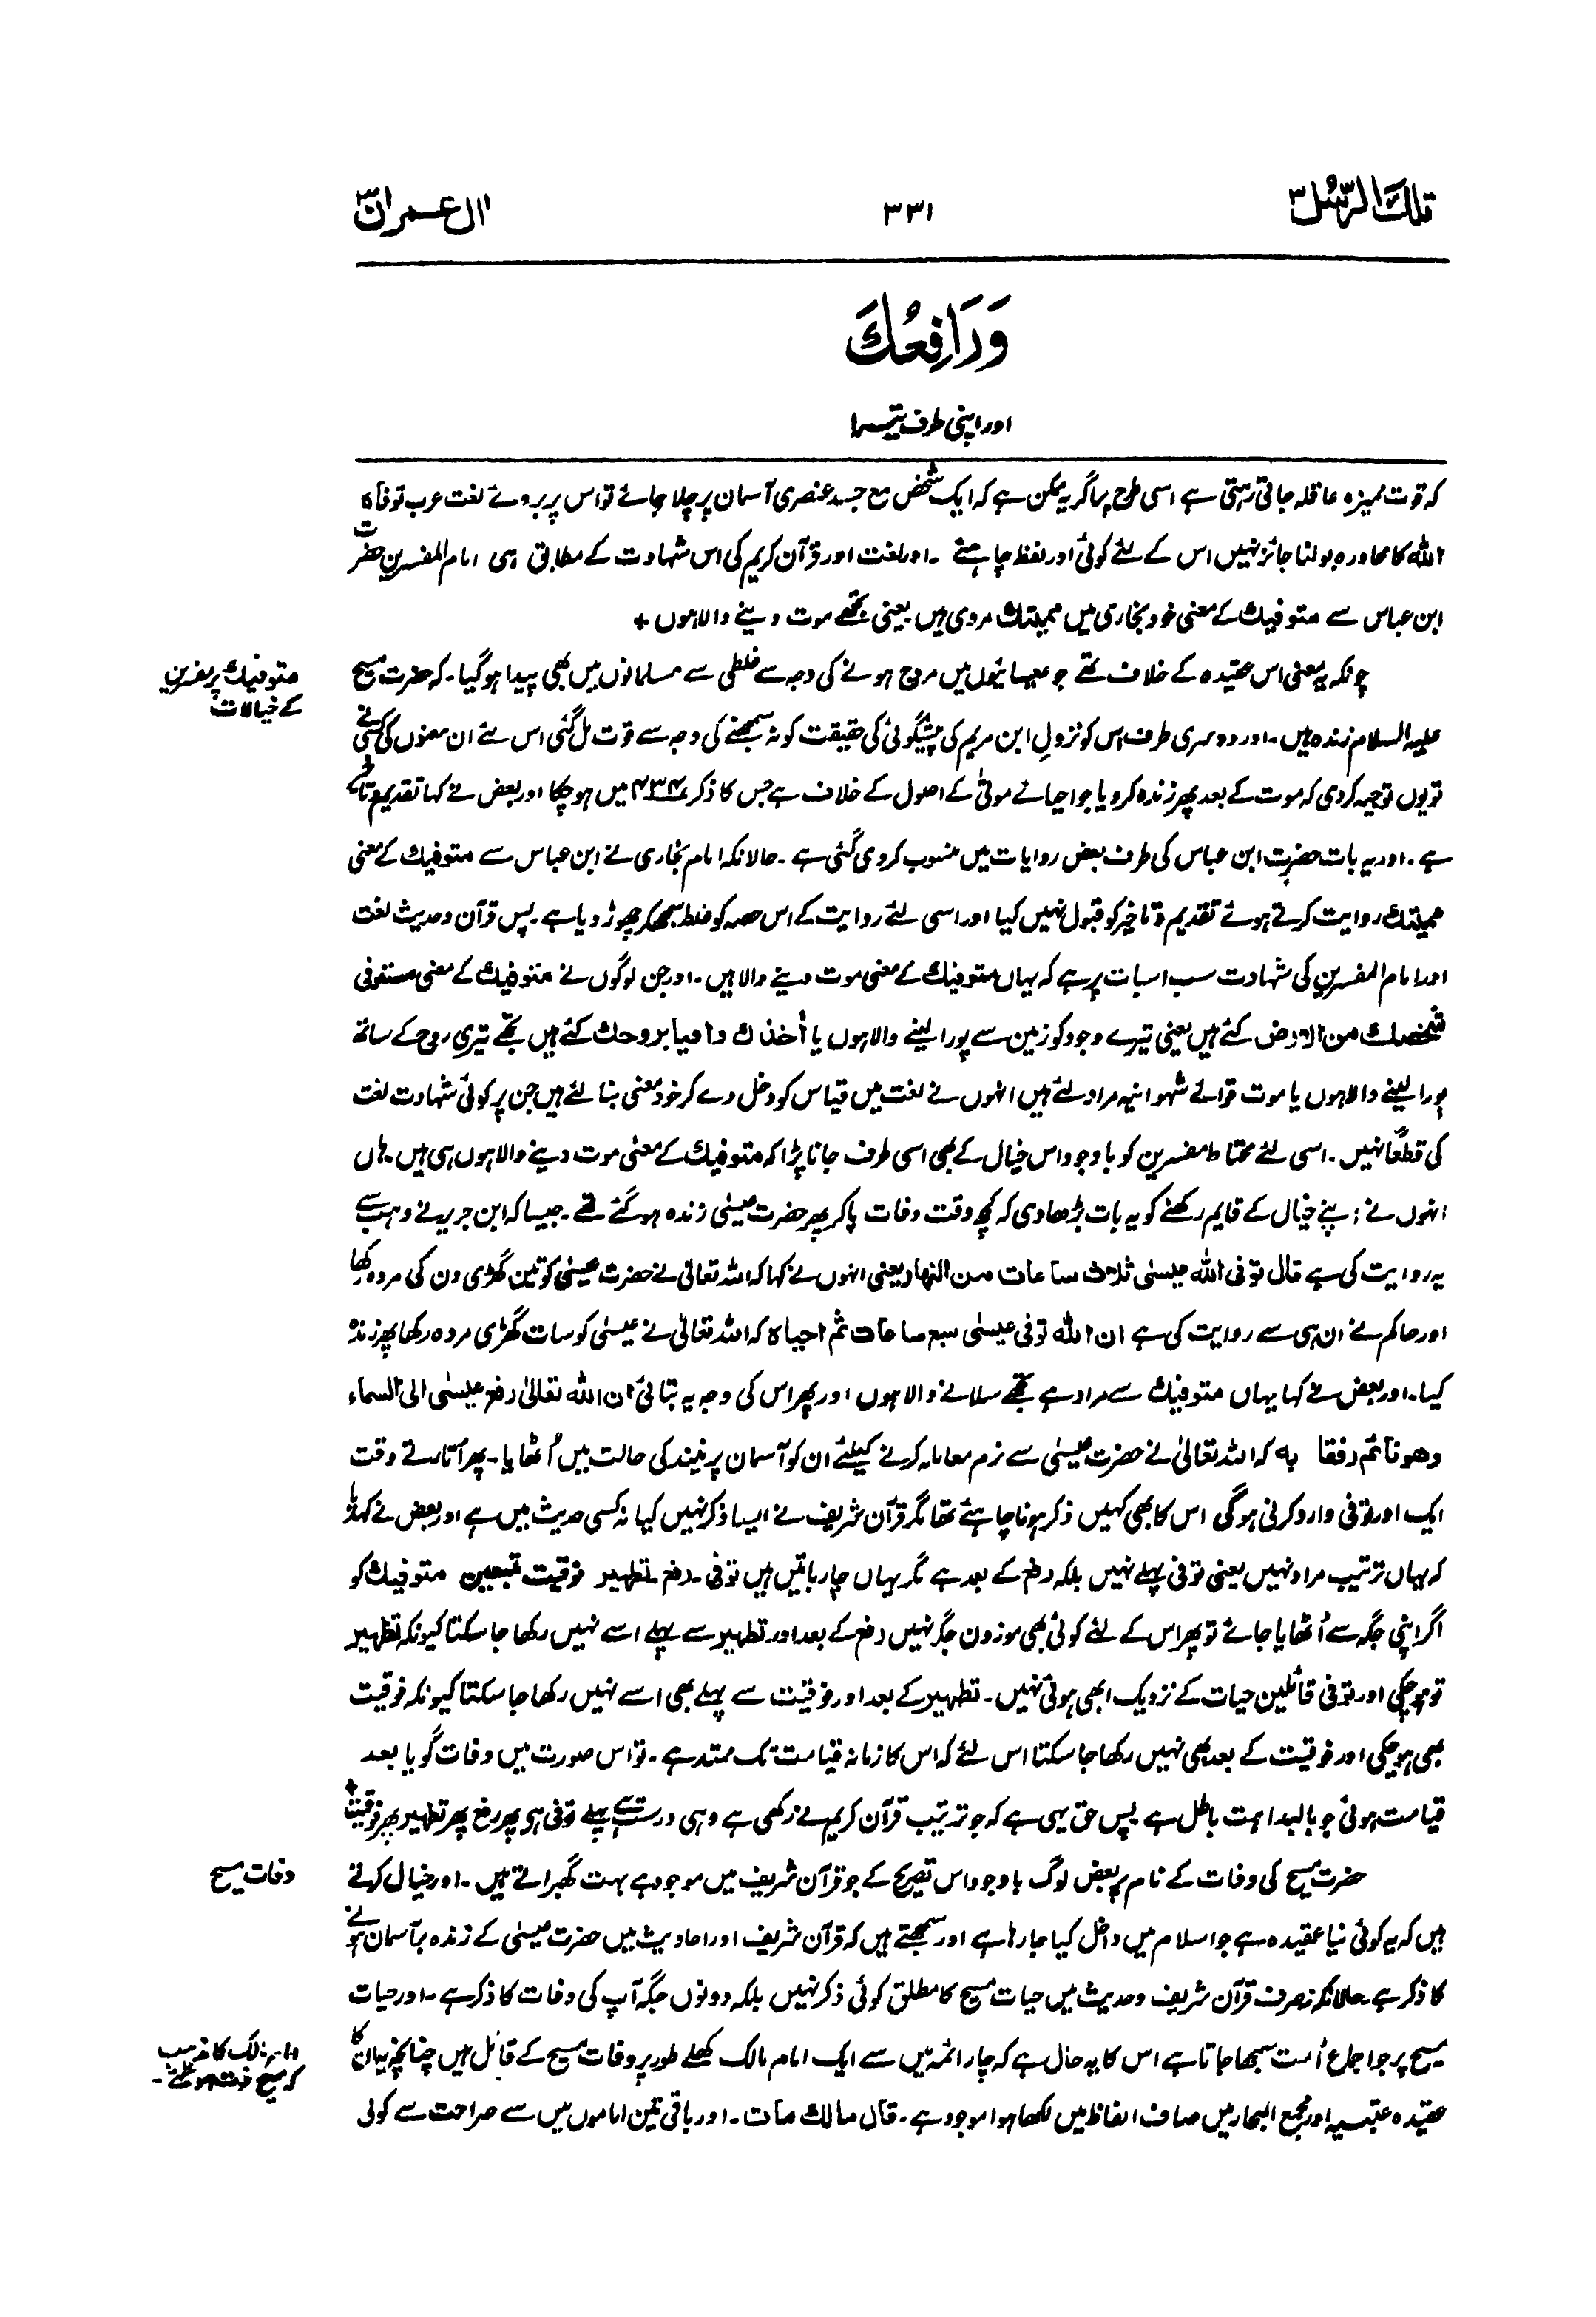 تلك الرّسُل ۳
۳۳۱
اٰل عمران ۳
وَرَافِعُكَ
اور اپنی طرف تیرا
کہ قوت ممیزہ عاقلہ جاتی رہتی ہے اسی طرح پر اگر یہ ممکن ہے کہ ایک شخص مع جسد عنصری آسمان پر چلا جائے تو اس پر بروئے لغت عرب توفاہ
اللہ کا محاورہ بولنا جائز نہیں اس کے لئے کوئی اور لفظ چاہئے ۔ اور لغت اور قرآن کریم کی اس شہادت کے مطابق ہی امام المفسرین حضرت
ابن عباس سے متوفیك کے معنی خود بخاری میں ممیتك مروی ہیں یعنی تجھے موت دینے والا ہوں +
متوفیك پر مفسرین
کے خیالات
چونکہ یہ معنی اس عقیدہ کے خلاف تھے جو عیسائیوں میں مروج ہونے کی وجہ سے غلطی سے مسلمانوں میں بھی پیدا ہو گیا ۔ کہ حضرت مسیح
علیہ السلام زندہ ہیں ۔ اور دوسری طرف اس کو نزولِ ابن مریم کی پیشگوئی کی حقیقت کو نہ سمجھنے کی وجہ سے قوت مل گئی اس لئے ان معنوں کی کسی نے
تو یوں توجیہ کر دی کہ موت کے بعد پھر زندہ کر دیا جو احیائے موتیٰ کے اصول کے خلاف ہے جس کا ذکر ۴۳۴ میں ہو چکا اور بعض نے کہا تقدیم وتاخیر
ہے ۔ اور یہ بات حضرت ابن عباس کی طرف بعض روایات میں منسوب کر دی گئی ہے ۔ حالانکہ امام بخاری نے ابن عباس سے متوفیك کے معنی
ممیتك روایت کرتے ہوئے تقدیم و تاخیر کو قبول نہیں کیا اور اسی لئے روایت کے اس حصہ کو غلط سمجھ کر چھوڑ دیا ہے ۔ پس قرآن و حدیث لغت
اور امام المفسرین کی شہادت سب اسبات پر ہے کہ یہاں متوفیك کے معنی موت دینے والا ہیں ۔ اور جن لوگوں نے متوفیك کے معنی مستوفی
شخصك من الارض کئے ہیں یعنی تیرے وجود کو زمین سے پورا لینے والا ہوں یا أخذك وافیا بروحك کئے ہیں تجھے تیری روح کے ساتھ
پورا لینے والا ہوں یا موت قوائے شہوانیہ مراد لئے ہیں انہوں نے لغت میں قیاس کو دخل دے کر خود معنی بنا لئے ہیں جن پر کوئی شہادت لغت
کی قطعاً نہیں ۔ اسی لئے محتاط مفسرین کو باوجود اس خیال کے بھی اسی طرف جانا پڑا کہ متوفیك کے معنی موت دینے والا ہوں ہی ہیں ۔ ہاں
انہوں نے اپنے خیال کے قایم رکھنے کو یہ بات بڑھا دی کہ کچھ وقت وفات پاکر پھر حضرت عیسٰی زندہ ہو گئے تھے ۔ جیسا کہ ابن جریر نے وہب سے
یہ روایت کی ہے قال توفی اللہ عیسٰی ثلاث ساعات من النھار یعنی انہوں نے کہا کہ اللہ تعالیٰ نے حضرت عیسٰی کو تین گھڑی دن کی مردہ رکھا
اور حاکم نے ان ہی سے روایت کی ہے ان اللہ توفی عیسٰی سبع ساعات ثم احیاہ کہ اللہ تعالیٰ نے عیسٰی کو سات گھڑی مردہ رکھا پھر زندہ
کیا ۔ اور بعض نے کہا یہاں متوفیك سے مراد ہے تجھے سلانے والا ہوں اور پھر اس کی وجہ یہ بتائی ان اللہ تعالیٰ رفع عیسٰی الی السماء
وھو نائم رفقا به کہ اللہ تعالیٰ نے حضرت عیسٰی سے نرم معاملہ کرنے کیلئے ان کو آسمان پر نیند کی حالت میں اُٹھایا ۔ پھر اُتارتے وقت
ایک اور توفی وارد کرنی ہو گی اس کا بھی کہیں ذکر ہونا چاہئے تھا مگر قرآن شریف نے ایسا ذکر نہیں کیا نہ کسی حدیث میں ہے اور بعض نے کہدیا
کہ یہاں ترتیب مراد نہیں یعنی توفی پہلے نہیں بلکہ رفع کے بعد ہے مگر یہاں چار باتیں ہیں توفی ۔ رفع ۔ تطہیر فوقیت متبعین متوفیك کو
اگر اپنی جگہ سے اُٹھایا جائے تو پھر اس کے لئے کوئی بھی موزون جگہ نہیں رفع کے بعد اور تطہیر سے پہلے اسے نہیں رکھا جا سکتا کیونکہ تطہیر
تو ہو چکی اور توفی قائلین حیات کے نزدیک ابھی ہوئی نہیں ۔ تطہیر کے بعد اور فوقیت سے پہلے بھی اسے نہیں رکھا جا سکتا کیونکہ فوقیت
بھی ہو چکی اور فوقیت کے بعد بھی نہیں رکھا جا سکتا اس لئے کہ اس کا زمانہ قیامت تک ممتد ہے ۔ تو اس صورت میں وفات گویا بعد
قیامت ہوئی جو بالبداہت باطل ہے پس حق یہی ہے کہ جو ترتیب قرآن کریم نے رکھی ہے وہی درست ہے پہلے توفی ہو پھر رفع پھر تطہیر پھر فوقیت +
وفات مسیح
حضرت مسیح کی وفات کے نام پر بعض لوگ باوجود اس تصریح کے جو قرآن شریف میں موجود ہے بہت گھبراتے ہیں ۔ اور خیال کرتے
ہیں کہ یہ کوئی نیا عقیدہ ہے جو اسلام میں داخل کیا جا رہا ہے اور سمجھتے ہیں کہ قرآن شریف اور احادیث میں حضرت عیسٰی کے زندہ بر آسمان ہونے
کا ذکر ہے حالانکہ نہ صرف قرآن شریف و حدیث میں حیات مسیح کا مطلق کوئی ذکر نہیں بلکہ دونوں جگہ آپ کی وفات کا ذکر ہے ۔ اور حیات
امام مالک کا مذہب
کہ مسیح فوت ہو گئے ۔
مسیح پر جو اجماع اُمت سمجھا جاتا ہے اس کا یہ حال ہے کہ چار ائمہ میں سے ایک امام مالک کھلے طور پر وفات مسیح کے قائل ہیں چنانچہ بیان کا
عقیدہ عتبیہ اور مجمع البحار میں صاف الفاظ میں لکھا ہوا موجود ہے ۔ قال مالك مات ۔ اور باقی تین اماموں میں سے صراحت سے کوئی